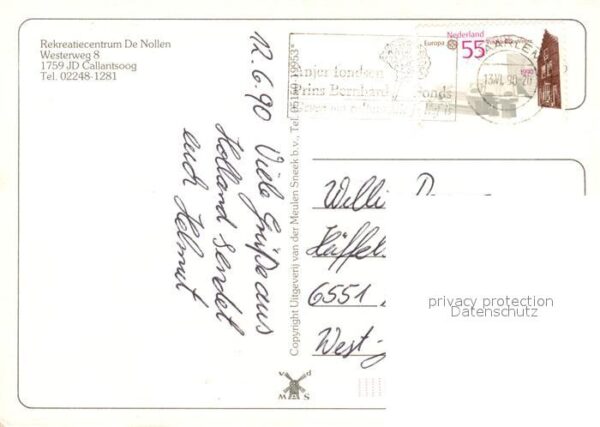 Rekreatiecentrum De Nollen
Westerweg 8
1759 JD Callantsoog
Tel. 02248-1281
Nederland
Europa
55
1990
13.VI.90-20
Anjerfondsen
Prins Bernhard Fonds
12.6.90 Viele Grüße aus
Holland sendet
euch Helmut
Copyright Uitgeverij van der Meulen Sneek b.v., Tel. 05150-19553*
Willi
6551
West-
privacy protection
Datenschutz
v d
M S